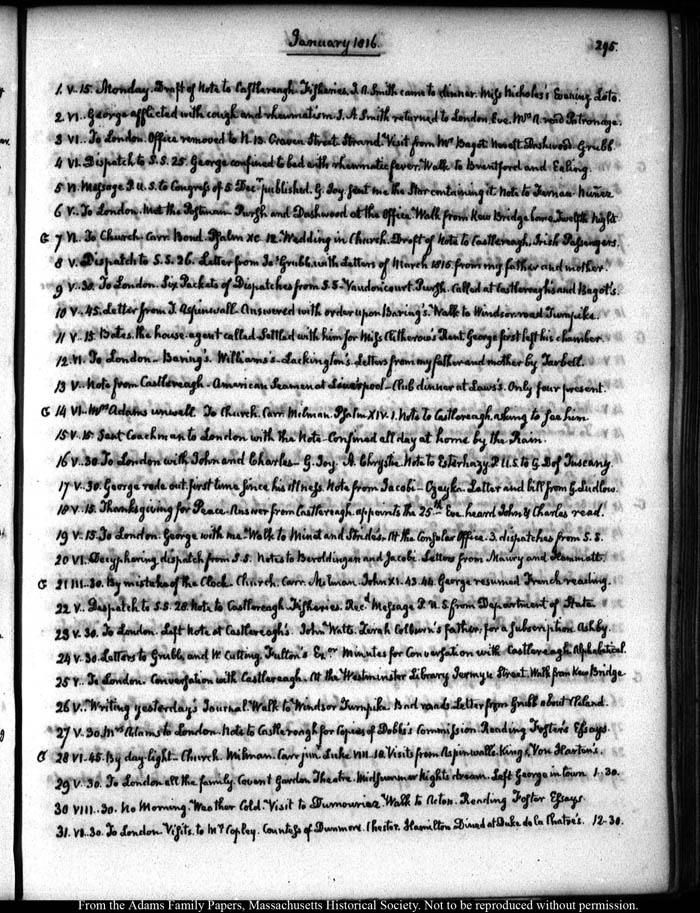 January 1816.
295.
1. V.15. Monday. Draft of Note to Castlereagh. Fisheries. J. A. Smith came to dinner. Miss Nicholas's Evening Loto.
2 VI.. George afflicted with cough and rheumatism. J. A. Smith returned to London. Eve. Mrs A. read Patronage.
3 VI... To London. Office removed to N. 13. Craven Street Strand. Visit from Mr Bagot. Dashwood. Grubb.
4 VI. Dispatch to S.S. 25. George confined to bed with rheumatic fever. Walk to Brentford and Ealing.
5 VI. Message P. U.S. to Congress of 5 Decr published. G. Joy sent me the Star containing it. Note to Fernan Nuñez
6 V.. To London. Met the Postman. Pursh and Dashwood at the Office. Walk from Kew Bridge home. Twelfth Night.
G 7 VI. To Church. Carr. Bond. Psalm XC. 12. Wedding in Church. Draft of Note to Castlereagh, Irish Passengers.
8 V.. Dispatch to S.S. 26. Letter from Js Grubb, with Letters of March 1815 from my father and mother.
9 V..30. To London. Six Packets of Dispatches from S.S. Vaudoncourt. Pursh. Called at Castlereagh's and Bagot's.
10 V..45. Letter from T. Aspinwall. Answered with order upon Baring's. Walk to Windsor road Turnpike.
11 V..15 Bates, the house-agent called. Settled with him for Miss Clitherow's Rent. George first left his chamber.
12. VI. To London. Baring's. Williams's. Lackington's. Letters from my father and mother by Tarbell.
13 V.. Note from Castlereagh. American Seamen at Liverpool. Club dinner at Laws's. Only four present.
G 14 VI.. Mrs Adams unwell. To Church. Carr. Milman. Psalm XIV. 1. Note to Castlereagh, asking to see him
15 V.15. Sent Coachman to London with the Note. Confined all day at home by the Rain.
16 V..30. To London with John and Charles. G. Joy. A. Chrystie. Note to Esterhazy. P. U.S. to G. D. of Tuscany.
17 V..30. George rode out first time since his illness. Note from Jacobi. Letter and bill from G. Ludlow.
18 V..15. Thanksgiving for Peace. Answer from Castlereagh. appoints the 25th Eve. heard John & Charles read.
19 V..15. To London. George with me. Walk to Minet and Stride's. At the Consular Office. 3. dispatches from S.S.
20 VI. Decyphering dispatch from S.S. Notes to Beroldingen and Jacobi. Letters from Maury and Hammatt.
G 21 III..30. By mistake of the Clock. Church. Carr. Milman. John XI. 43. 44. George resumed French reading.
22 V.. Dispatch to S.S. 28. Note to Castlereagh. Fisheries. Recd Message P. U.S. from Department of State.
23 V. 30. To London. Left Note at Castlereagh's. John Watts. Zerah Colburn's father, for a subscription. Ashby.
24 V..30. Letters to Grubb, and W. Cutting. Fulton's Exor Minutes for Conversation with Castlereagh. Alphabetical.
25 V.. To London. Conversation with Castlereagh. At the Westminster Library Jermyn Street. Walk from Kew Bridge.
26 V.. Writing yesterday's Journal. Walk to Windsor Turnpike. Bad roads. Letter from Grubb about Cleland.
27 V..30. Mrs Adams to London. Note to Castlereagh for Copies of Dobbs's Commission. Reading Foster's Essays.
G 28 VI..45. By day-light. Church. Milman. Carr junr Luke VIII. 18. Visits from Aspinwalls. Kings, Von Harten's.
29 V.30. To London all the family. Covent Garden Theatre. Midsummer Nights dream. Left George in town. 1-30.
30 VIII..30. No Morning. Weather Cold. Visit to Dumouriez. Walk to Acton. Reading Foster Essays.
31. VI..30. To London. Visits, to Mr Copley. Countess of Dunmore. Chester. Hamilton. Dined at Duke de la Chatre's. 12-30.
From the Adams Family Papers, Massachusetts Historical Society. Not to be reproduced without permission.